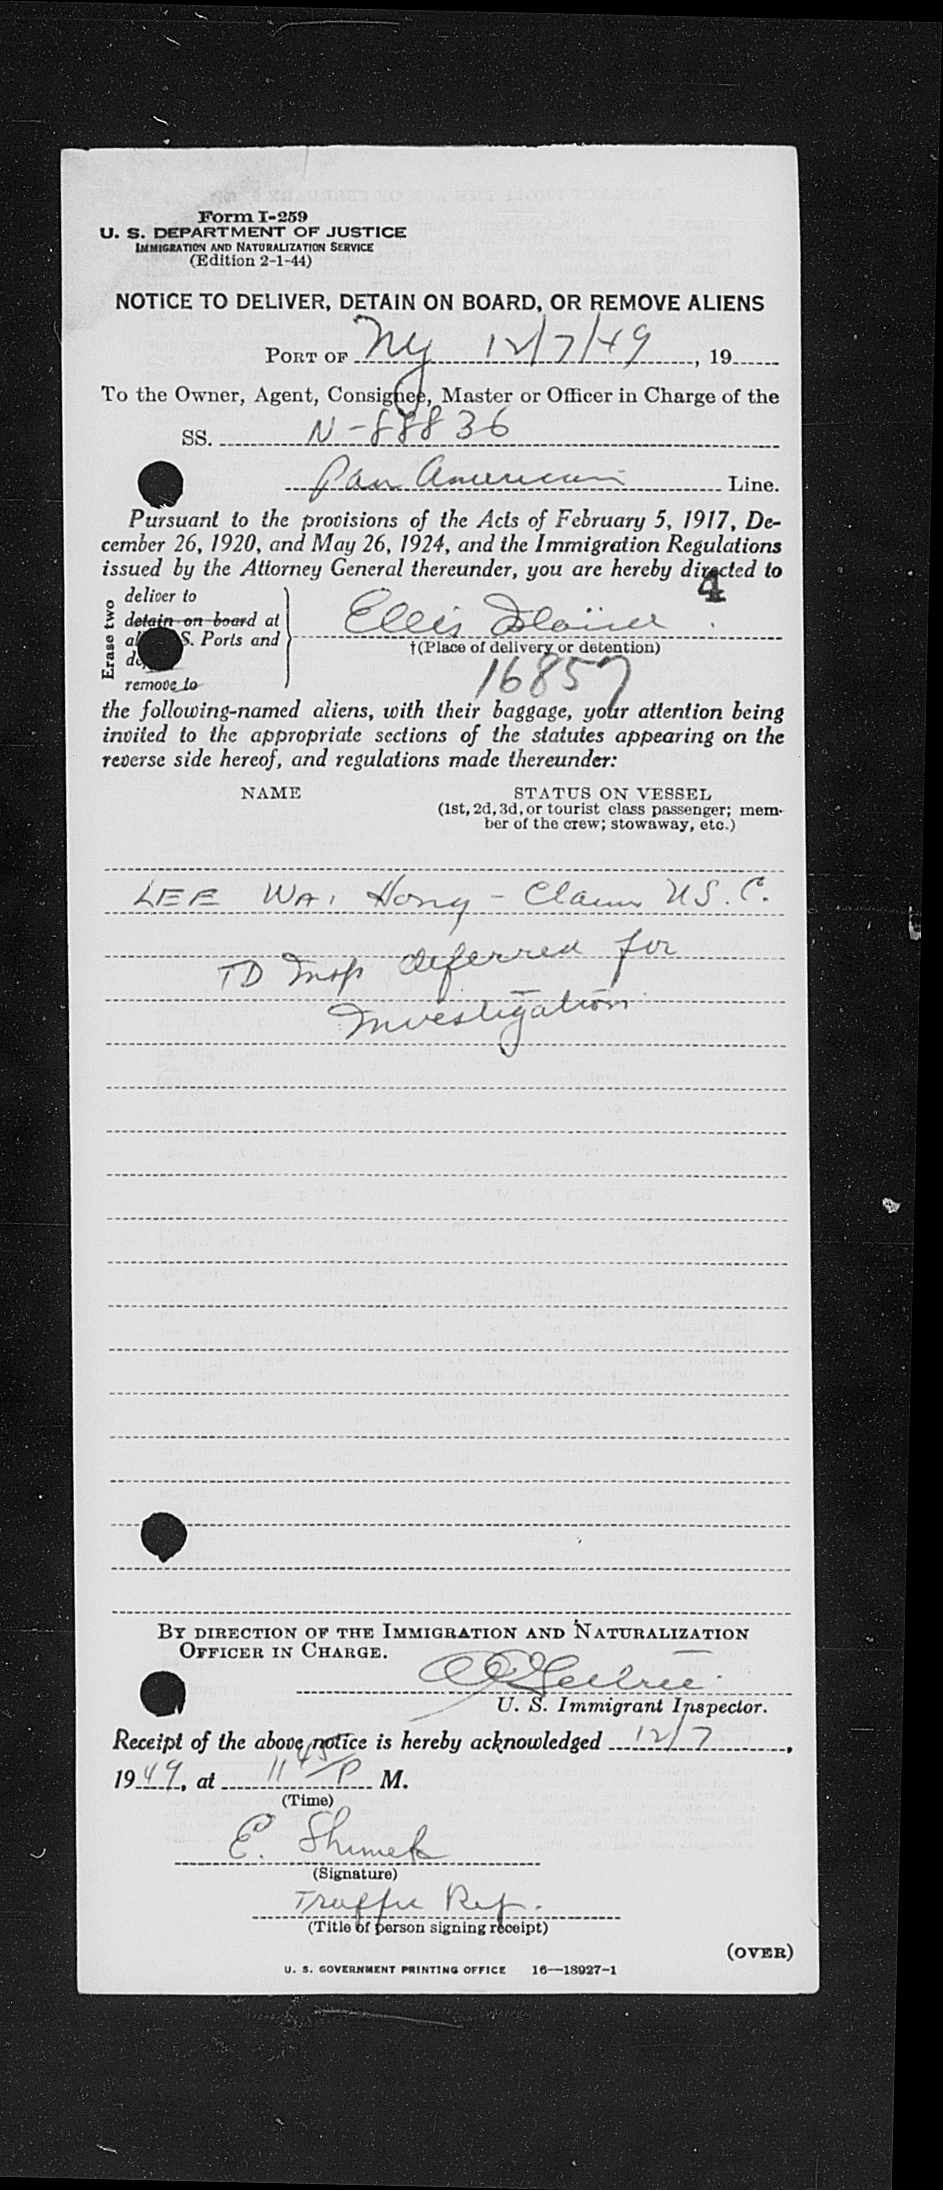 Form I-259
U. S. DEPARTMENT OF JUSTICE
IMMIGRATION AND NATURALIZATION SERVICE
(Edition 2-1-44)
NOTICE TO DELIVER, DETAIN ON BOARD, OR REMOVE ALIENS
PORT OF NY 12/7/49, 19
To the Owner, Agent, Consignee, Master or Officer in Charge of the
SS. N-88836
Pan American Line.
Pursuant to the provisions of the Acts of February 5, 1917, De-
cember 26, 1920, and May 26, 1924, and the Immigration Regulations
issued by the Attorney General thereunder, you are hereby directed to
4
Erase two
deliver to
detain on board at
S. Ports and
remove to
Ellis Island
†(Place of delivery or detention)
16857
the following-named aliens, with their baggage, your attention being
invited to the appropriate sections of the statutes appearing on the
reverse side hereof, and regulations made thereunder:
NAME STATUS ON VESSEL
(1st, 2d, 3d, or tourist class passenger; mem-
ber of the crew; stowaway, etc.)
LEE WAI Hong - Claim U.S.C.
TD Insp deferred for
Investigation
BY DIRECTION OF THE IMMIGRATION AND NATURALIZATION
OFFICER IN CHARGE.
U. S. Immigrant Inspector.
Receipt of the above notice is hereby acknowledged 12/7,
1949, at 11 45/P M.
(Time)
E. Shimek
(Signature)
Traffic Rep.
(Title of person signing receipt)
(OVER)
U. S. GOVERNMENT PRINTING OFFICE 16—18927-1